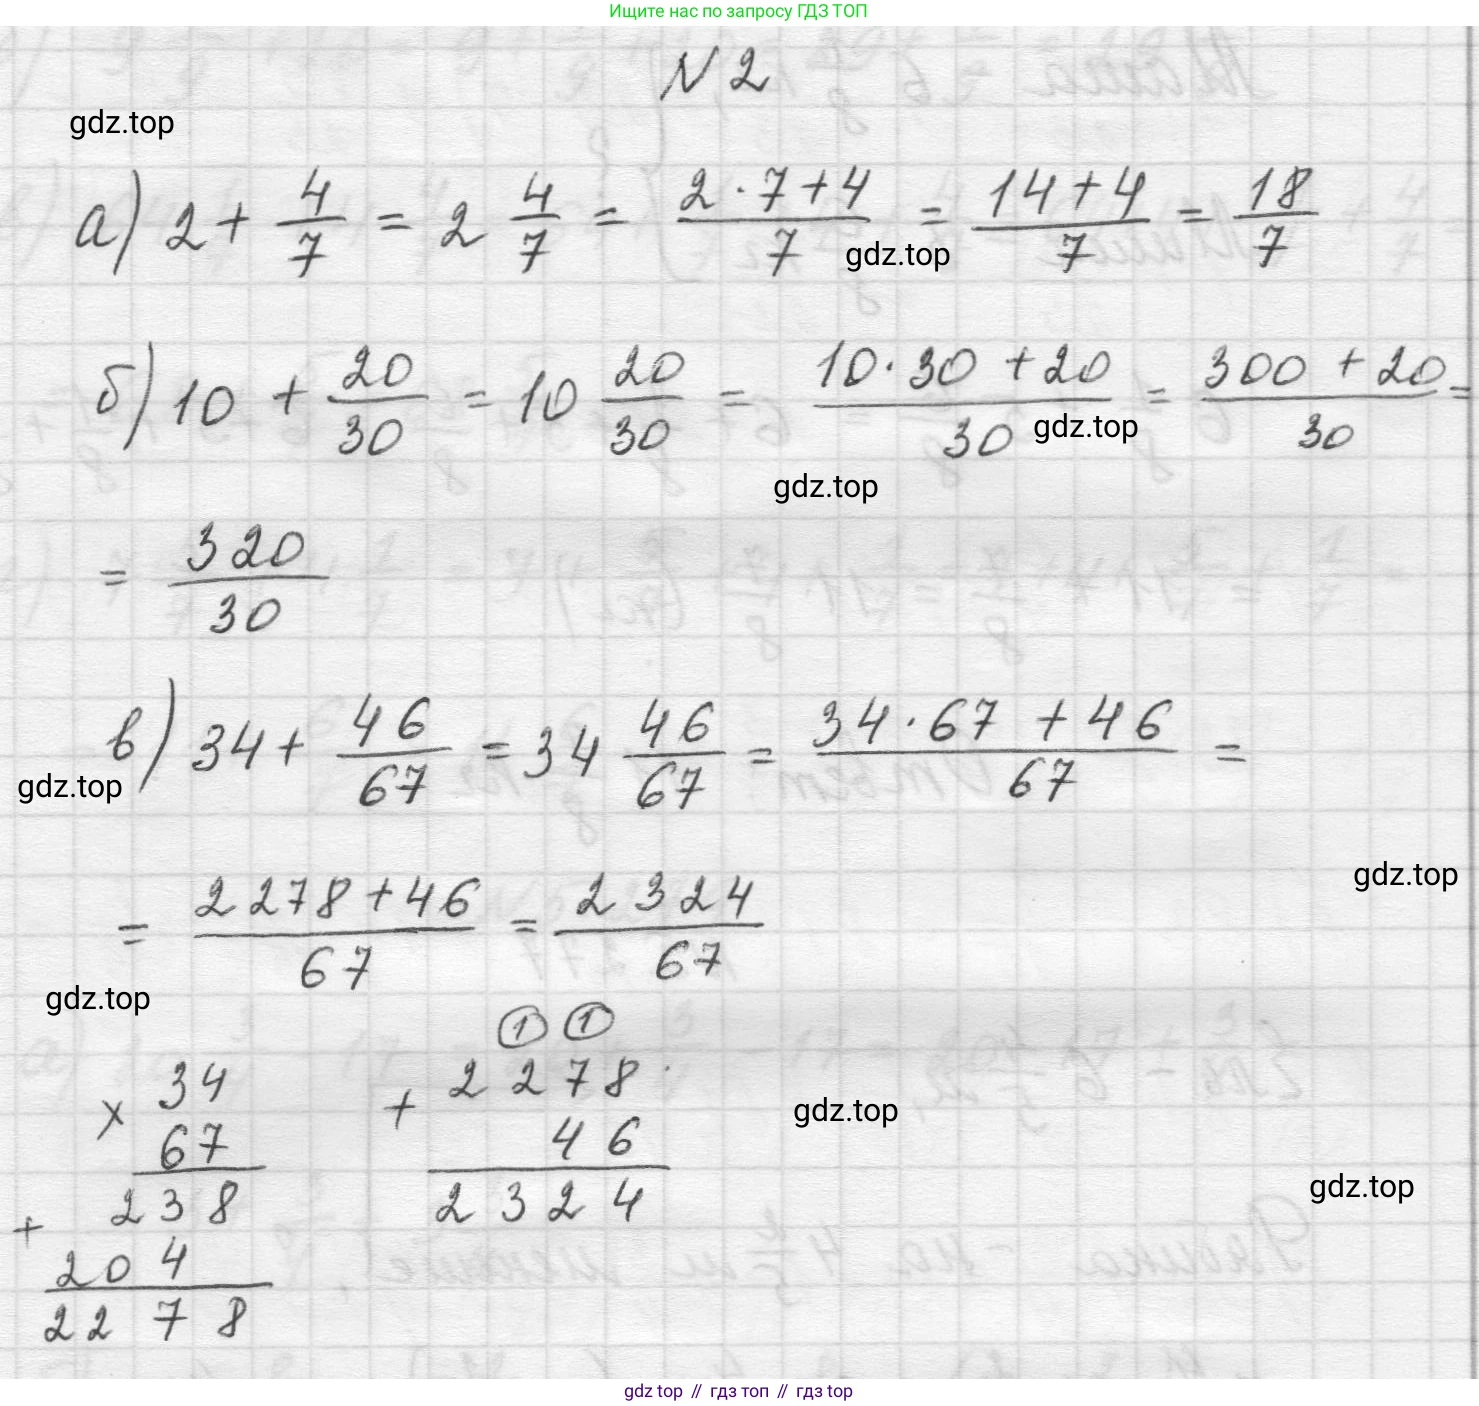 Ищите нас по запросу ГДЗ ТОП
N 2
gdz.top
а) 2 + 4/7 = 2 4/7 = (2 · 7 + 4)/7 = (14 + 4)/7 = 18/7
gdz.top
б) 10 + 20/30 = 10 20/30 = (10 · 30 + 20)/30 = (300 + 20)/30 =
gdz.top
gdz.top
= 320/30
в) 34 + 46/67 = 34 46/67 = (34 · 67 + 46)/67 =
gdz.top
gdz.top
= (2278 + 46)/67 = 2324/67
gdz.top
1 1
× 34 + 2278
67 46
gdz.top
238 2324
gdz.top
+ 204
2278
gdz top // гдз топ // гдз top